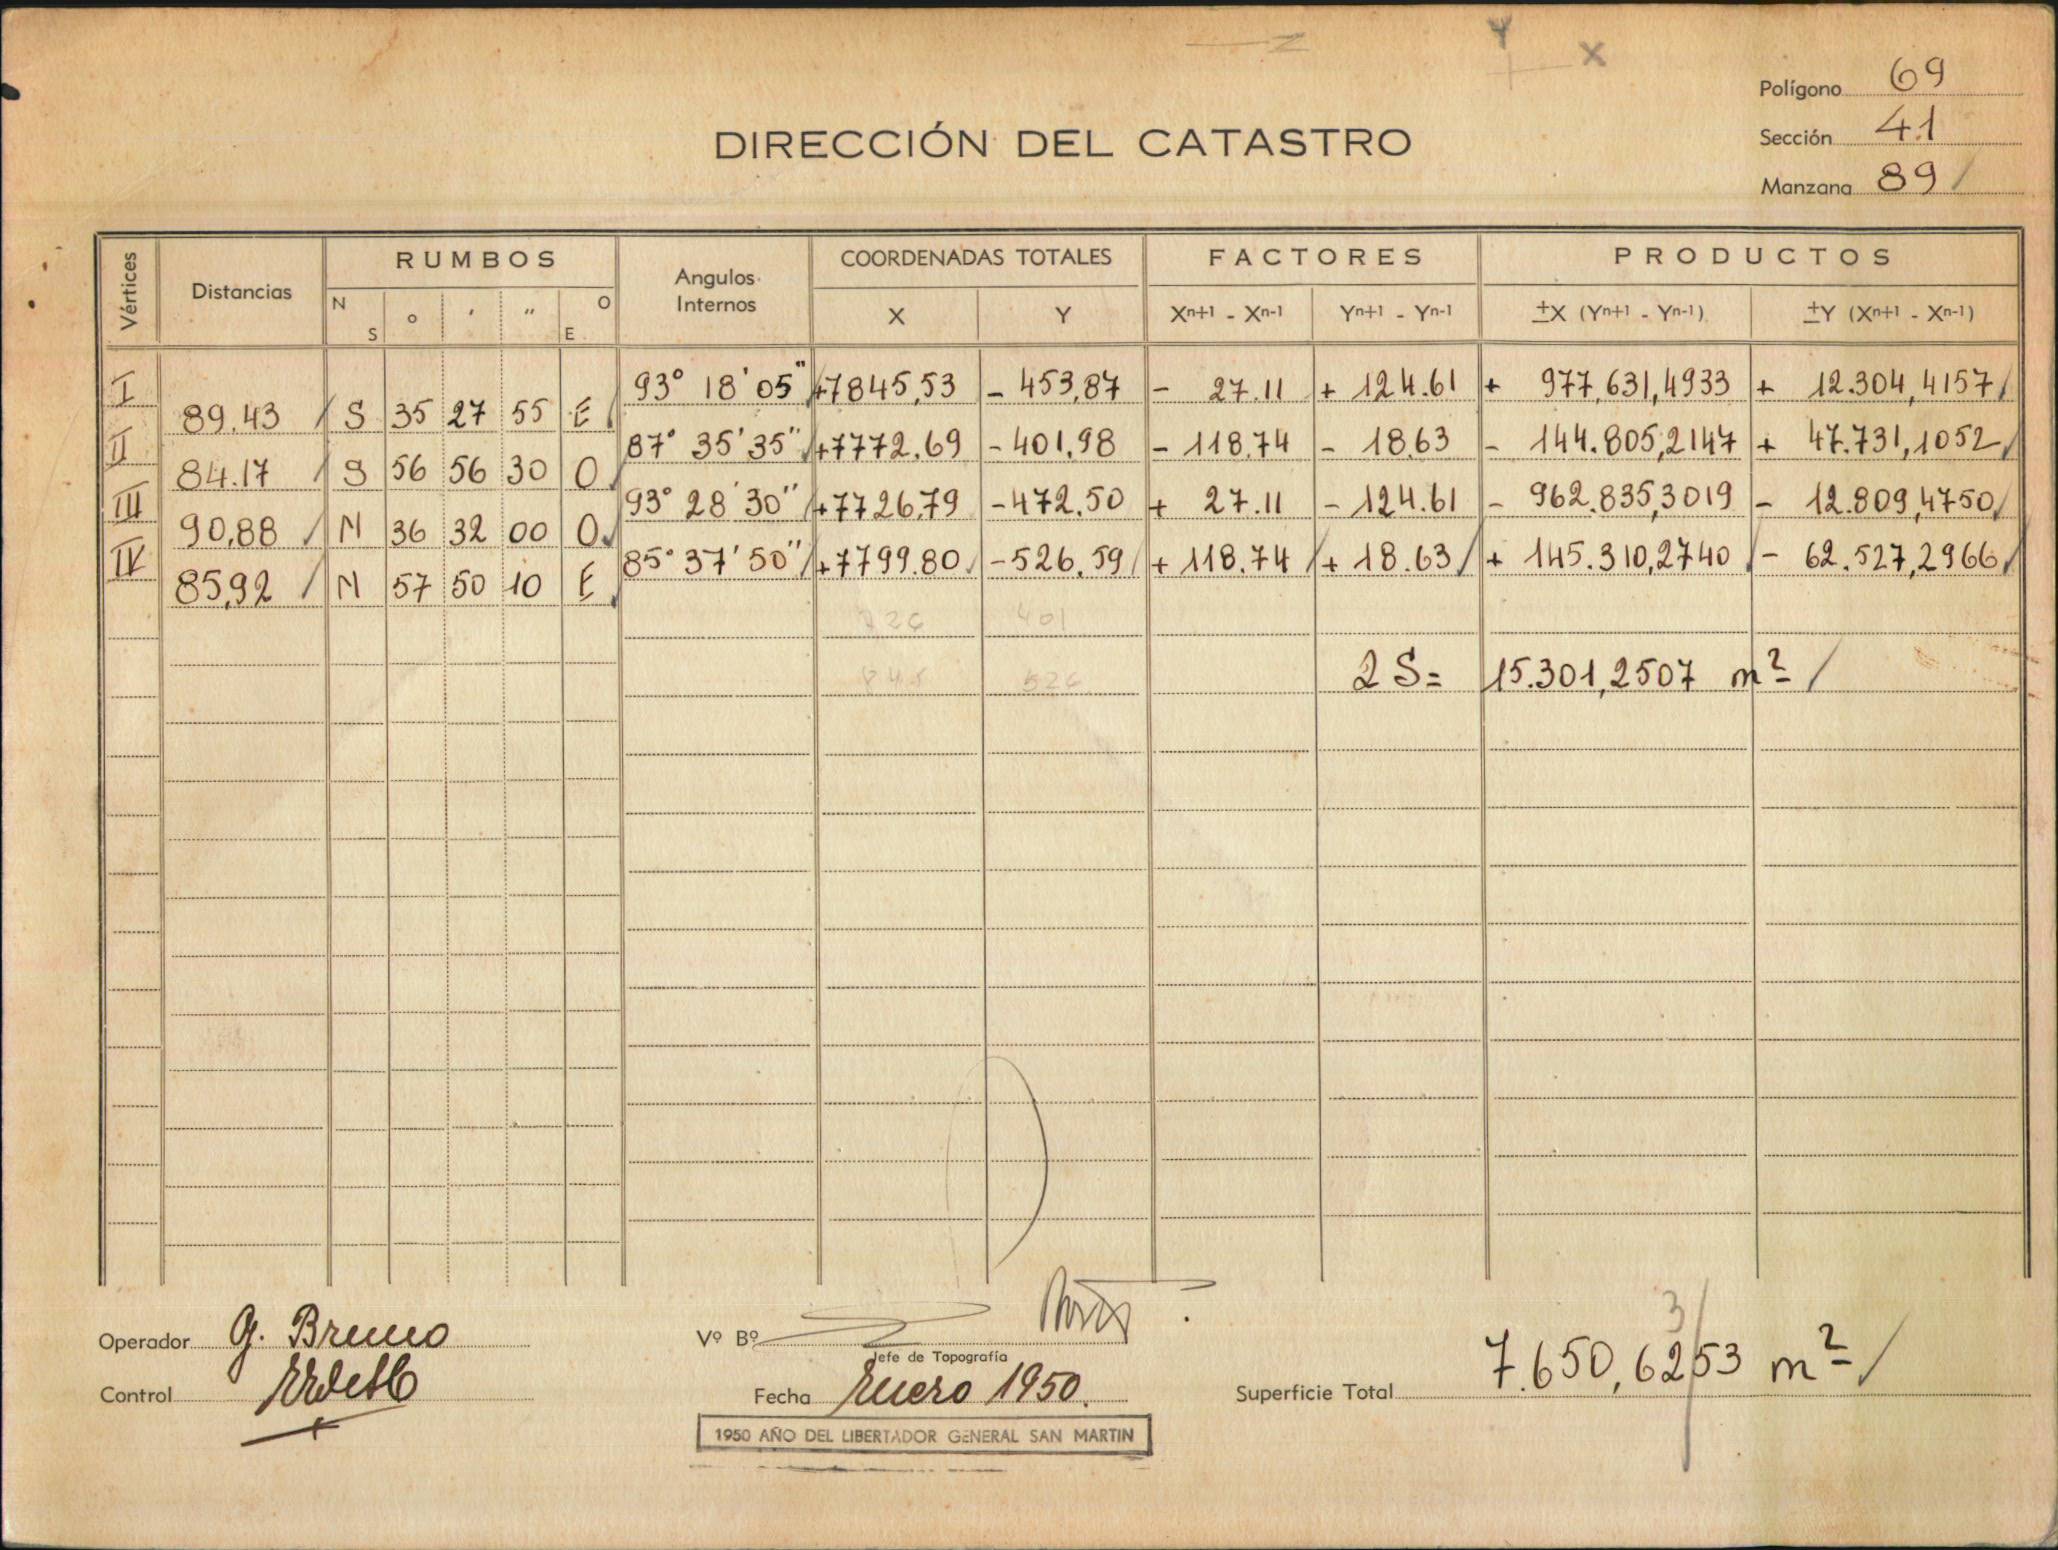 Y
X
Polígono 69
DIRECCIÓN DEL CATASTRO
Sección 41
Manzana 89
Vértices Distancias RUMBOS Angulos Internos COORDENADAS TOTALES FACTORES PRODUCTOS
N S ° ' " O E X Y Xn+1 - Xn-1 Yn+1 - Yn-1 ±X (Yn+1 - Yn-1) ±Y (Xn+1 - Xn-1)
I 93° 18' 05" +7845,53 - 453,87 - 27.11 + 124.61 + 977.631,4933 + 12.304,4157
89.43 S 35 27 55 E
II 87° 35' 35" +7772.69 -401,98 - 118.74 - 18.63 - 144.805,2147 + 47.731,1052
84.17 S 56 56 30 O
III 93° 28' 30" +7726,79 -472.50 + 27.11 - 124.61 - 962.835,3019 - 12.809,4750
90,88 N 36 32 00 O
IV 85° 37' 50" +7799.80 -526,59 + 118.74 + 18.63 + 145.310,2740 - 62.527,2966
85,92 N 57 50 10 E
726 401
845 526
2 S= 15.301,2507 m²
3
Operador G. Bruno
Vº Bº
Jefe de Topografía
Control
Fecha Enero 1950.
Superficie Total 7.650,6253 m²
1950 AÑO DEL LIBERTADOR GENERAL SAN MARTIN